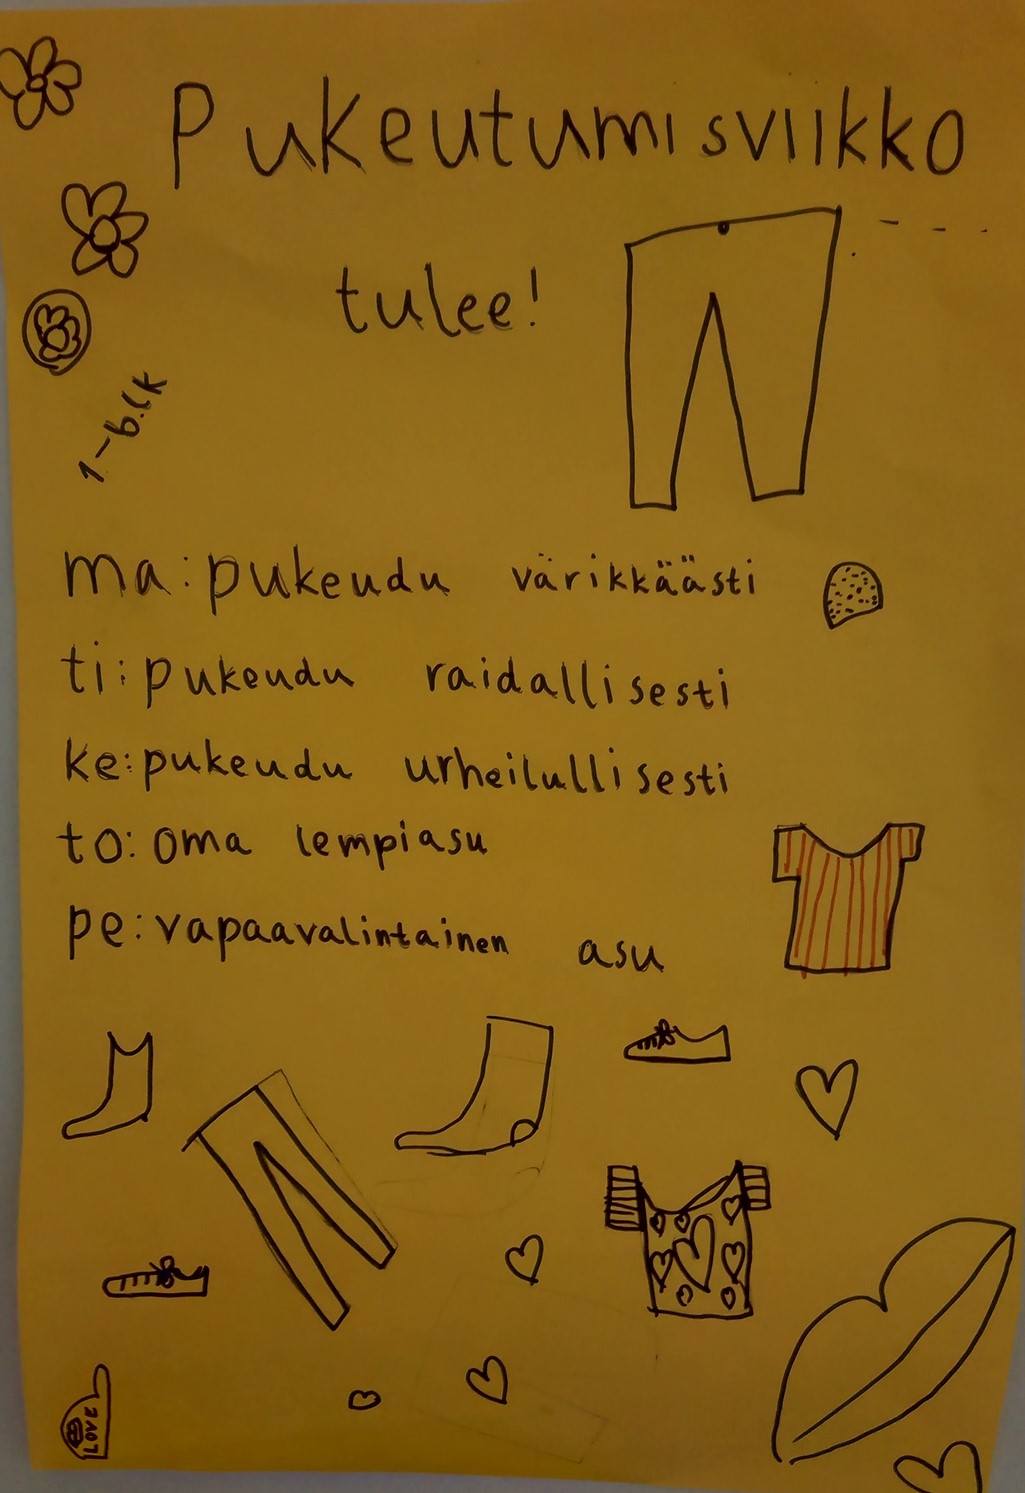 Pukeutumisviikko
tulee!
1-6.lk
ma: pukeudu värikkäästi
ti: pukeudu raidallisesti
ke: pukeudu urheilullisesti
to: oma lempiasu
pe: vapaavalintainen asu
LOVE